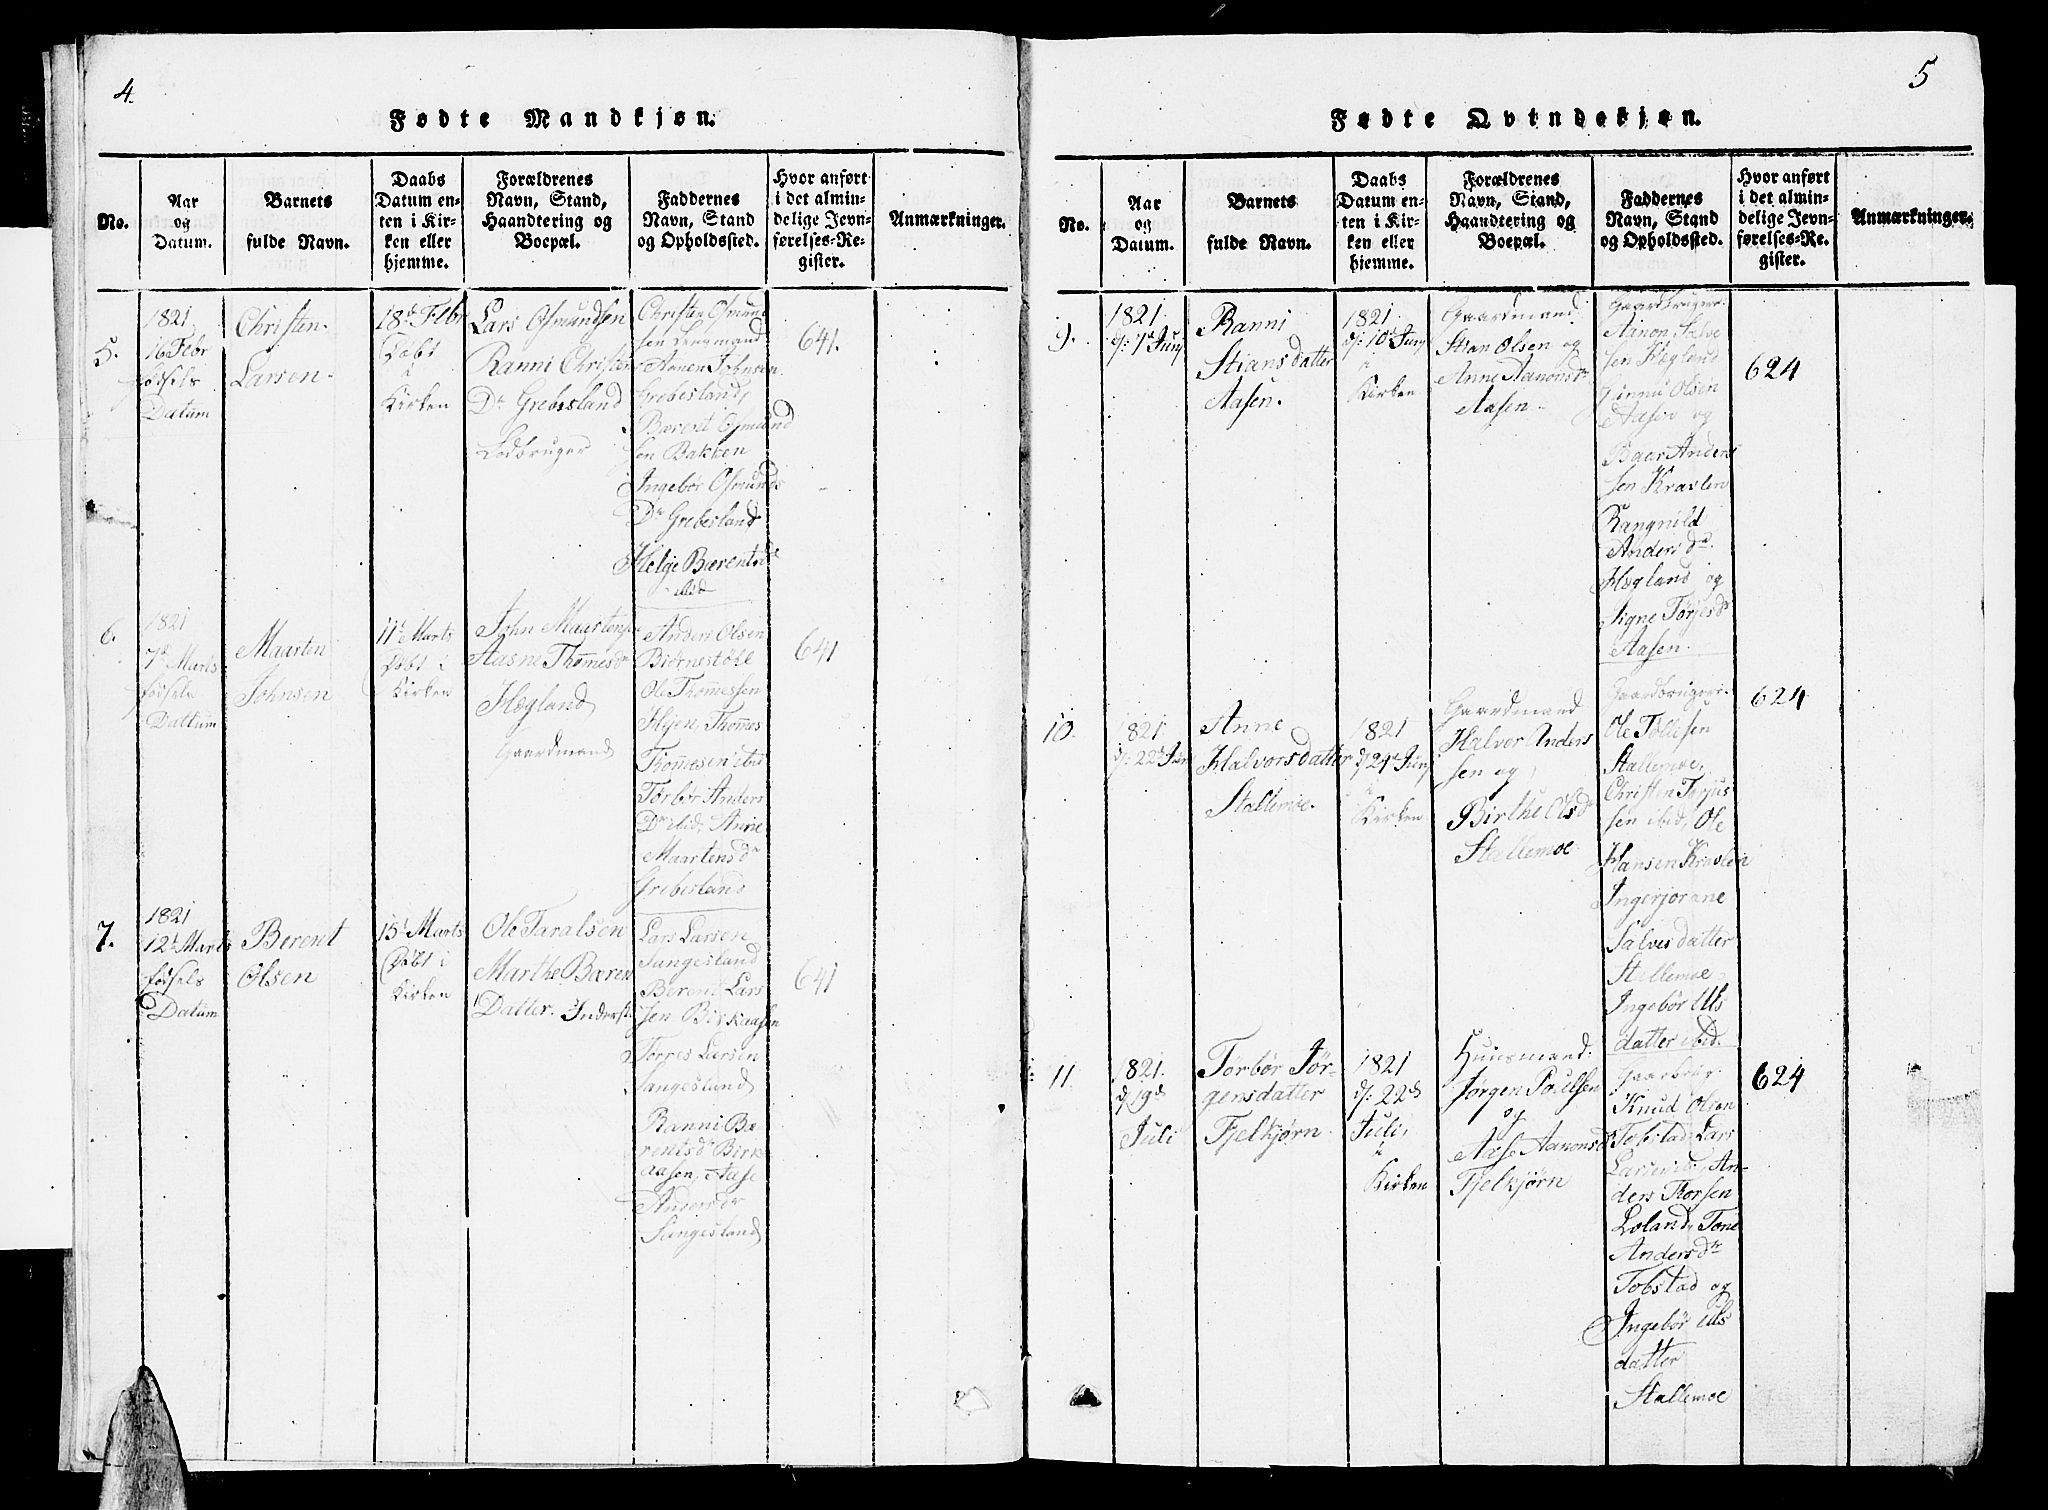 4.
Fødte Mandkjøn.
No.
Aar
og
Datum.
Barnets
fulde Navn.
Daabs
Datum en-
ten i Kir-
ken eller
hjemme.
Forældrenes
Navn, Stand,
Haandtering og
Boepæl.
Faddernes
Navn, Stand
og Opholdssted.
Hvor anført
i det almin-
delige Jevn-
førelses-Re-
gister.
Anmærkninger.
5.
1821
16 Febr
fødsels
Datum
Christen
Larsen.
18de Febr
Døbt
i
Kirken
Lars Osmundsen
Ranni Christen
Dr Grebesland
Lodbruger
Christen Osmund
sen Lensmand
Aanen Johnsen
Grebesland,
Bærent Osmund
sen Bakken
Ingebør Osmunds
Dr Grebesland
Helge Bærentsdr
ibid
641.
6.
1821
7de Marts
fødsels
Dattum
Maarten
Johnsen
11te Marts
Døbt i
Kirken
John Maartensen
Aasne Thomesdr
Hægland
Gaardmand
Anders Olsen
Biørnestøle
Ole Thomessen
Thomes
Thomesen ibid
Torbør Anders
Dr ibid, Anne
Maartensdr
Grebesland
641
7.
1821
12t Marts
fødsels
Datum
Berent
Olsen
15t Marts
Døbt i
Kirken
Ole Taralsen
Marthe Bæren
Datter.
Lars Larsen
Sangesland
Berent Lars
sen Birkaasen
Torres Larsen
Sangesland
Ranni Bæ
rentsdr Birk
aasen, Aase
Andersdr
Sangesland
641
5
Fødte Qvindekjøn.
No.
Aar
og
Datum.
Barnets
fulde Navn.
Daabs
Datum en-
ten i Kir-
ken eller
hjemme.
Forældrenes
Navn, Stand,
Haandtering og
Boepæl.
Faddernes
Navn, Stand
og Opholdssted.
Hvor anført
i det almin-
delige Jevn-
førelses-Re-
gister.
Anmærkninger.
9.
1821
d: 1te Junj
Ranni
Stians datter
Aasen.
1821
d: 10de Junj
i
Kirken
Gaardmand
Stian Olsen og
Anne Aanonsdr
Aasen.
Gaardbruger
Aanon Salve
sen Hægland
Gunnu Olsen
Aasen og
Baar Anders
sen Kravlen
Rangnild
Andersdr.
Hægland og
Signe Torjesdr
Aasen.
624
10.
1821
d: 22de Junj
Anne
Halvorsdatter
Stallemoe.
1821
d/24de Junj
i
Kirken
Gaardmand
Halvor Anders
sen og
Birthe Olsdr
Stallemoe
Gaardbruger.
Ole Tollesen
Stallemoe,
Christen Terjus
sen ibid, Ole
Hansen Kravlen
Ingerjorane
Salvesdatter
Stallemoe
Ingebør Uls
datter ibid.
624
11.
1821.
d/19de
Juli
Torbør Jør-
gensdatter
Fjelkjørn.
1821
d: 22de
Juli,
i
Kirken
Huusmand.
Jørgen Poulsen
og
Aase Aanonsdr
Fjelkjørn
Gaarbrug.
Knud Olsen
Tobstad, Lars
Larsen ibid, An-
ders Thorsen
Loland, Tone
Andersdtr
Tobstad og
Ingebør Uls
datter
Stallemoe
624